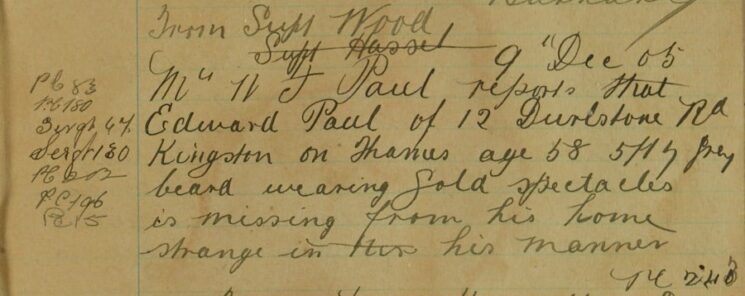 From Supt Wood
Supt Hassel 9" Dec 05
Mr W J Paul reports that
Edward Paul of 12 Durlstone Rd
Kingston on Thames age 58 5/7½ grey
beard wearing Gold spectacles
is missing from his home
strange in his manner
PC 83
PC 180
Sergt 47
Sergt 130
PC 202
PC 196
PC 15
PC 243